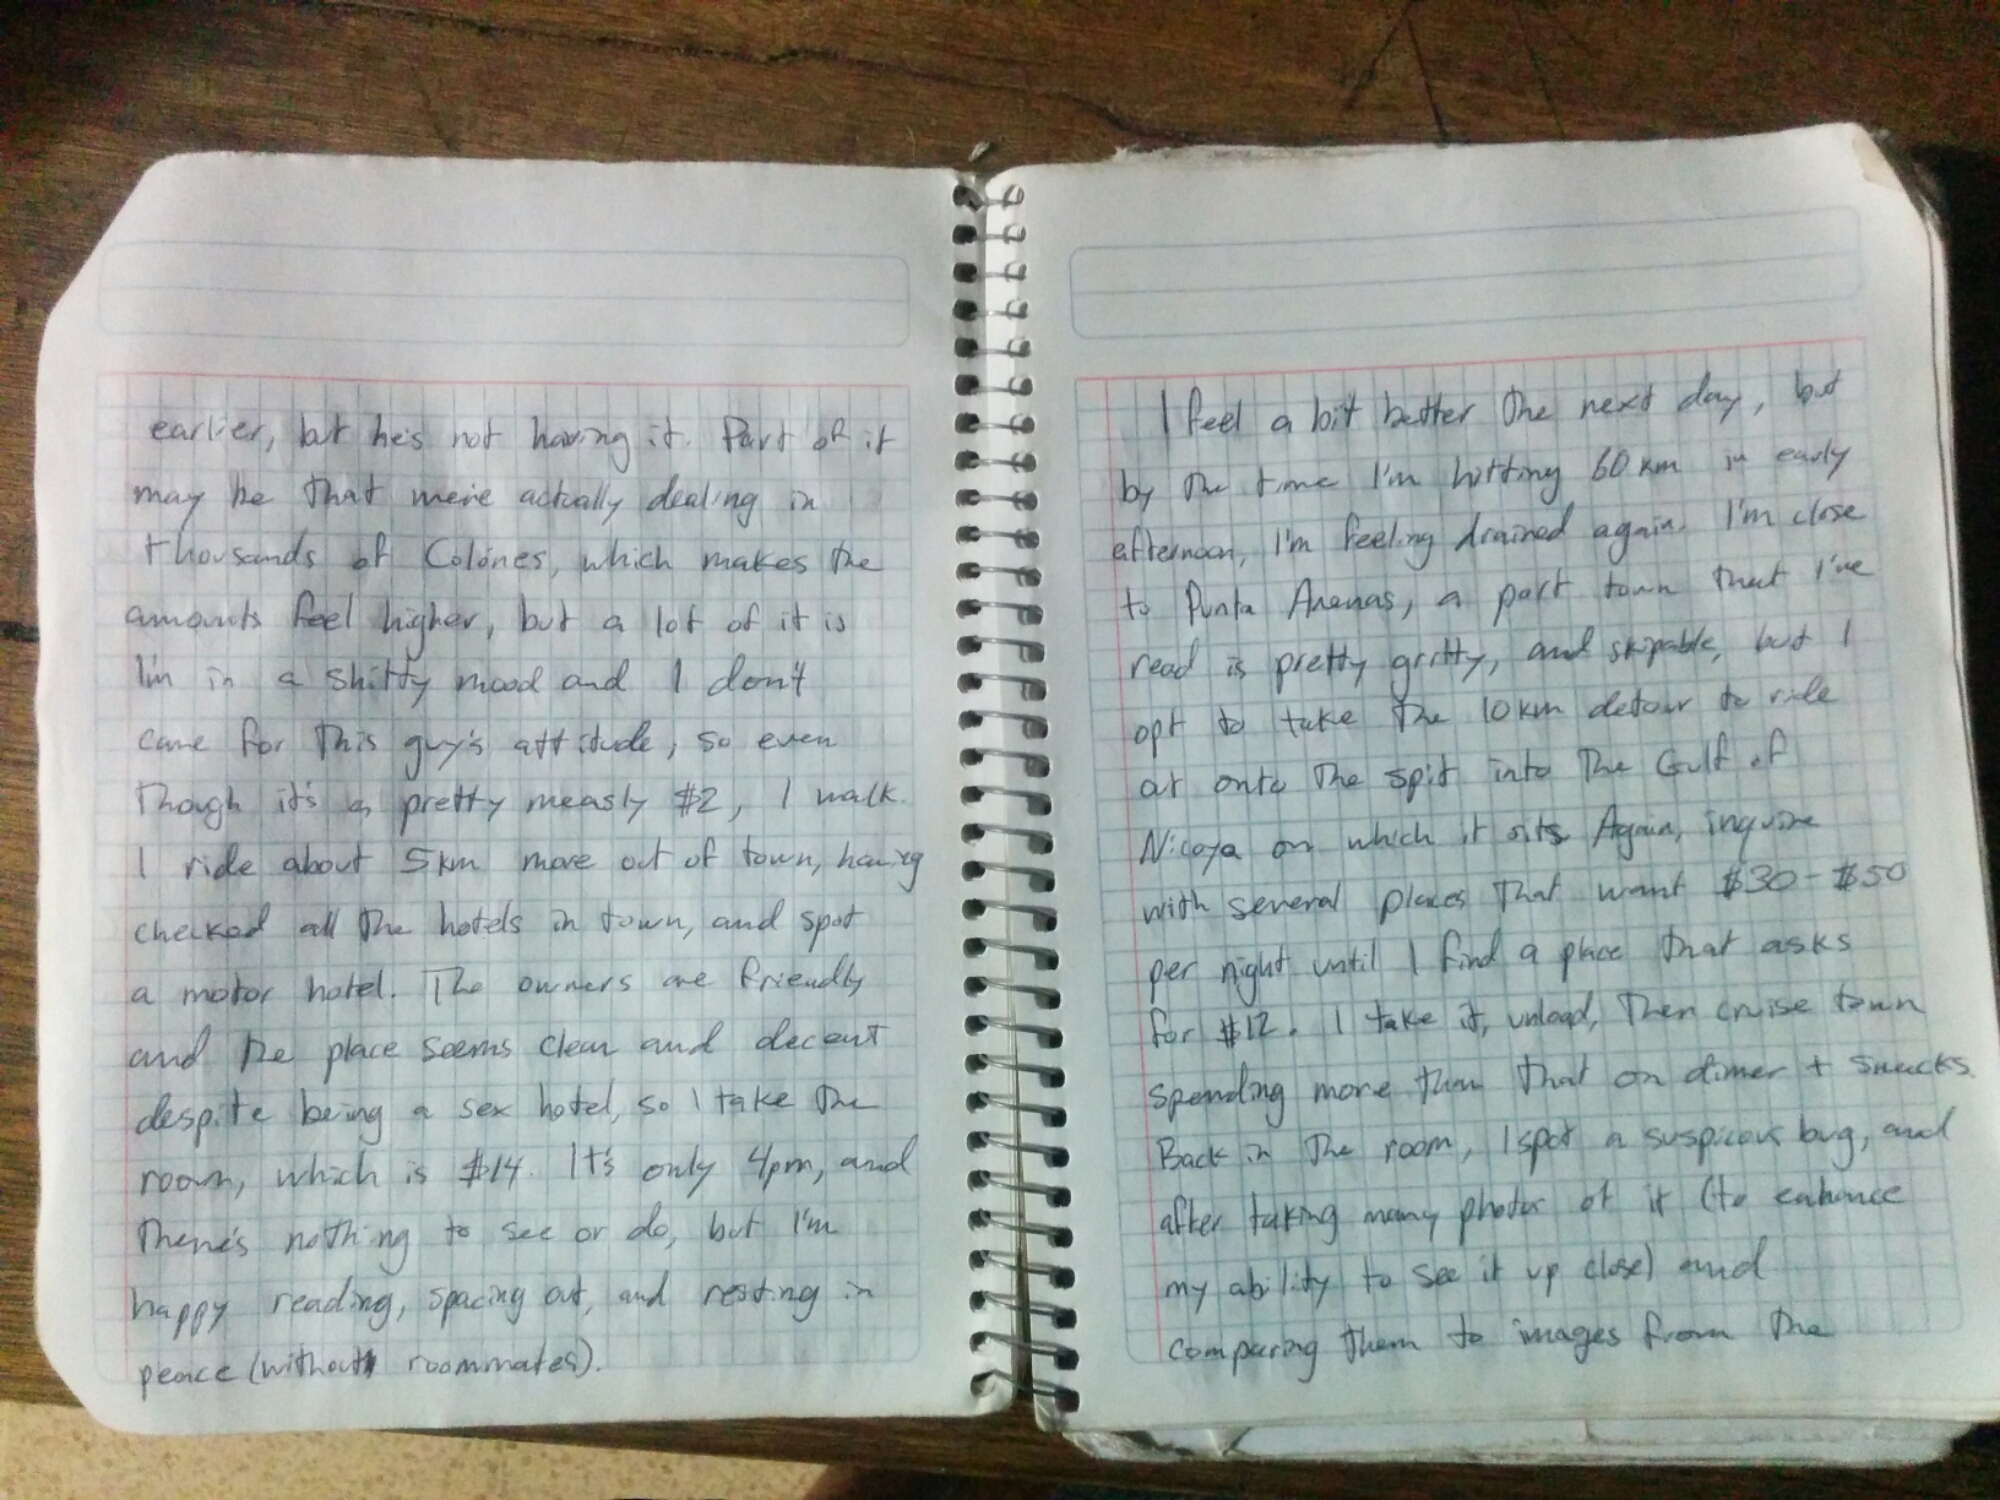 earlier, but he's not having it. Part of it
may be that we're actually dealing in
thousands of Colónes, which makes the
amounts feel higher, but a lot of it is
I'm in a shitty mood and I don't
care for this guy's attitude, so even
though it's a pretty measly $2, I walk.
I ride about 5km more out of town, having
checked all the hotels in town, and spot
a motor hotel. The owners are friendly
and the place seems clean and decent
despite being a sex hotel, so I take the
room, which is $14. It's only 4pm, and
there's nothing to see or do, but I'm
happy reading, spacing out, and resting in
peace (without roommates).
I feel a bit better the next day, but
by the time I'm hitting 60 km in early
afternoon, I'm feeling drained again. I'm close
to Punta Arenas, a port town that I've
read is pretty gritty, and skipable, but I
opt to take the 10km detour to ride
out onto the spit into the Gulf of
Nicoya on which it sits. Again, inquire
with several places that want $30-$50
per night until I find a place that asks
for $12. I take it, unload, then cruise town
spending more than that on dinner + snacks.
Back in the room, I spot a suspicous bug, and
after taking many photos of it (to enhance
my ability to see it up close) and
comparing them to images from the